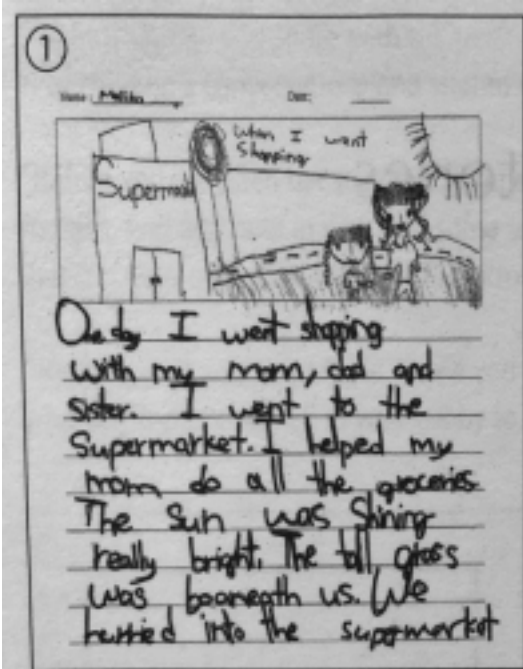 ①
Name: Melitta Date:
When I went
Shopping
Supermarket
One day I went shopping
with my mom, dad and
sister. I went to the
Supermarket. I helped my
mom do all the groceries
The Sun was Shining
really bright. The tall grass
was baoneath us. We
hurried into the supermarket